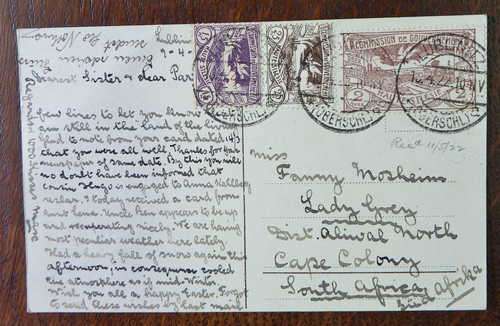 Lublin
9-4-
Dearest Sister & dear Paul
few lines to let you know
am still in the land of the living
Glad to note from your card dated 14/3
that you were all well. Thanks for Gab
newspaper of same date. By this you will
no doubt have been informed that
cousin Hugo is engaged to Anna
I today received a card from
aunt Lena. Uncle Ben appears to be up
and recuperating nicely. We are having
most peculiar weather here lately.
Had a heavy fall of snow again this
afternoon, in consequence cooled
the atmosphere as if mid-winter.
Wish you all a happy Easter. Forgot
to send these wishes by last mail
COMMISSION DE GOUVERNEMENT
HAUTE SILESIE
LUBLINITZ
(OBERSCHL.)
Recd 11/5/22
Miss
Fanny Mosheim
Lady Grey
Dist. Aliwal North
Cape Colony
South Africa
Süd Afrika